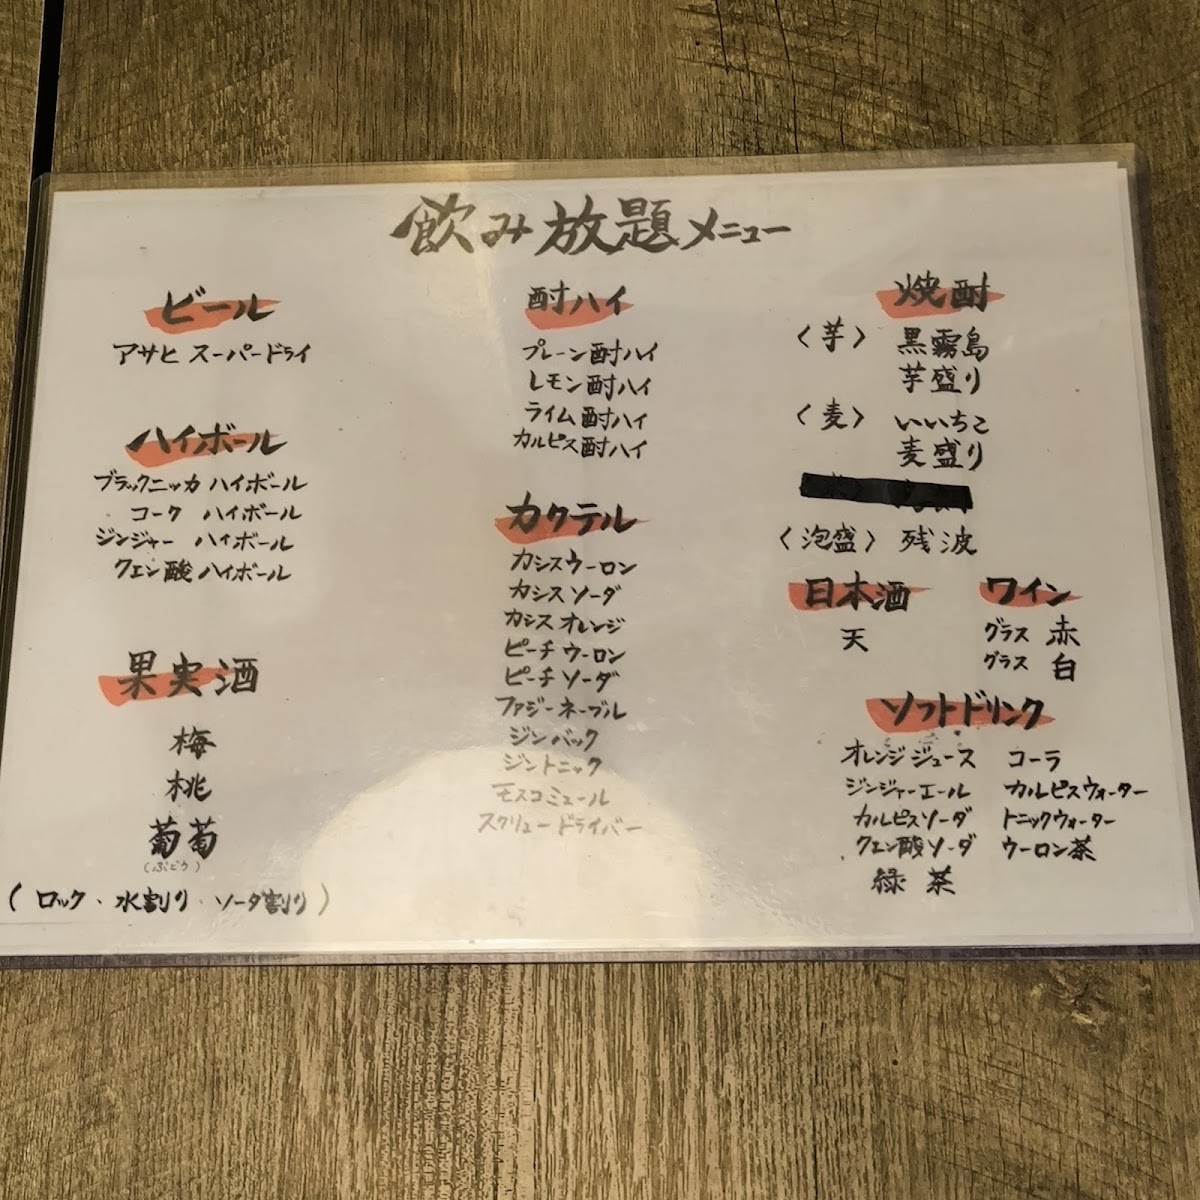 飲み放題メニュー
ビール
アサヒ スーパードライ
ハイボール
ブラックニッカ ハイボール
コーク ハイボール
ジンジャー ハイボール
クエン酸 ハイボール
果実酒
梅
桃
葡萄
(ぶどう)
(ロック・水割り・ソーダ割り)
酎ハイ
プレーン酎ハイ
レモン酎ハイ
ライム酎ハイ
カルピス酎ハイ
カクテル
カシスウーロン
カシスソーダ
カシスオレンジ
ピーチウーロン
ピーチソーダ
ファジーネーブル
ジンバック
ジントニック
モスコミュール
スクリュードライバー
焼酎
〈芋〉 黒霧島
芋盛り
〈麦〉 いいちこ
麦盛り
〈泡盛〉 残波
日本酒
天
ワイン
グラス 赤
グラス 白
ソフトドリンク
オレンジジュース コーラ
ジンジャーエール カルピスウォーター
カルピスソーダ トニックウォーター
クエン酸ソーダ ウーロン茶
緑茶